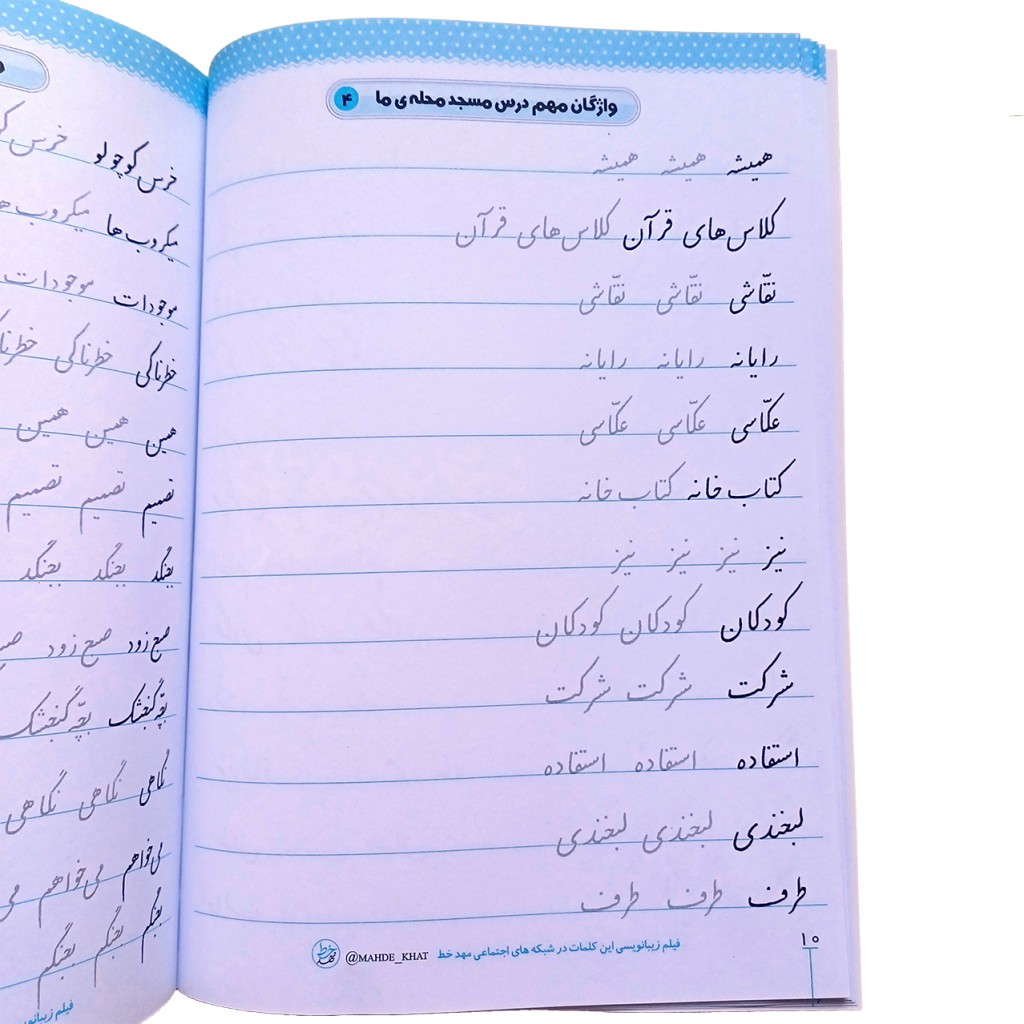 واژگان مهم درس مسجد محله‌ی ما ۴
همیشه همیشه همیشه
کلاس‌های قرآن کلاس‌های قرآن
نقّاشی نقّاشی نقّاشی
رایانه رایانه رایانه
عکّاسی عکّاسی عکّاسی
کتاب‌خانه کتاب‌خانه
نیز نیز نیز نیز
کودکان کودکان کودکان
شرکت شرکت شرکت
استفاده استفاده استفاده
لبخندی لبخندی لبخندی
طرف طرف طرف
فیلم زیبانویسی این کلمات در شبکه های اجتماعی مهد خط @MAHDE_KHAT
۱۰
خرس کوچولو خرس
میکروب‌ها میکروب‌ها
موجودات موجودات
خطرناکی خطرناکی
همین همین همین
تصمیم تصمیم تصمیم
بجنگد بجنگد بجنگد
صبح زود صبح زود
بچّه گنجشک بچّه گنجشک
نگاهی نگاهی نگاهی
می‌خواهم می‌خواهم می
بجنگم بجنگم بجنگم